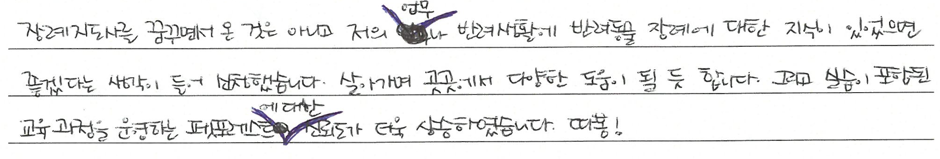 장례지도사를 꿈꾸면서 온 것은 아니고 저의 업무나 반려생활에 반려동물 장례에 대한 지식이 있었으면
좋겠다는 생각이 들어 신청했습니다. 살아가며 곳곳에서 다양한 도움이 될 듯 합니다. 그리고 실습이 포함된
교육 과정을 운영하는 펫포레스트에 대한 신뢰도가 더욱 상승하였습니다. 따봉!